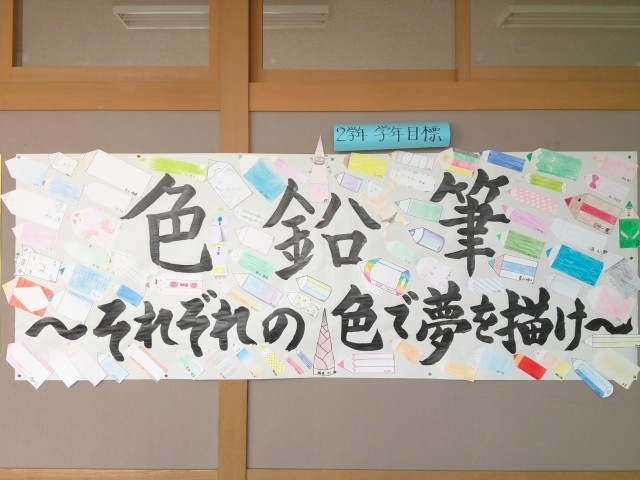 2学年 学年目標
色鉛筆
～それぞれの色で夢を描け～